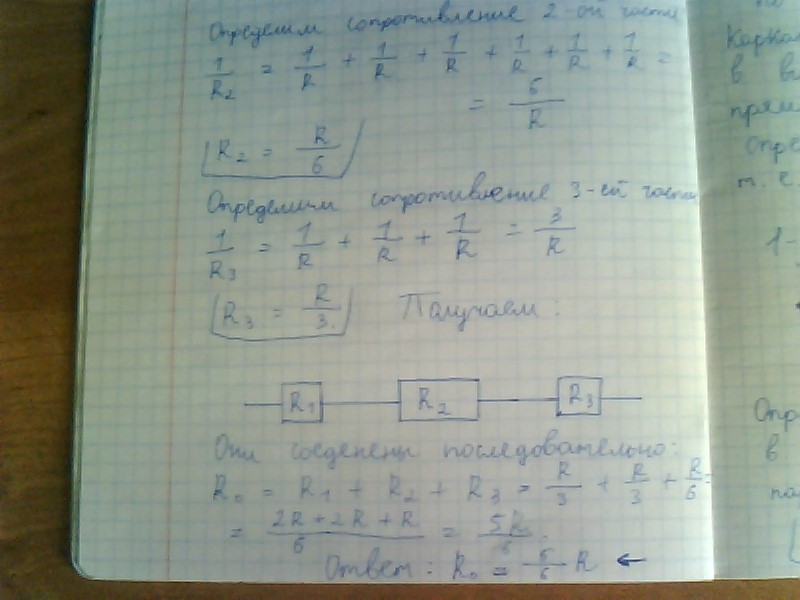 Определим сопротивление 2-ой части
1/R2 = 1/R + 1/R + 1/R + 1/R + 1/R + 1/R =
= 6/R
R2 = R/6
Определим сопротивление 3-ей части
1/R3 = 1/R + 1/R + 1/R = 3/R
R3 = R/3. Получаем:
R1 R2 R3
Они соеденены последовательно:
R0 = R1 + R2 + R3 = R/3 + R/3 + R/6 =
= (2R+2R+R)/6 = 5R/6.
Ответ: R0 = 5/6 R ←
в
прям
Опре
т. е.
1-
Опр
в